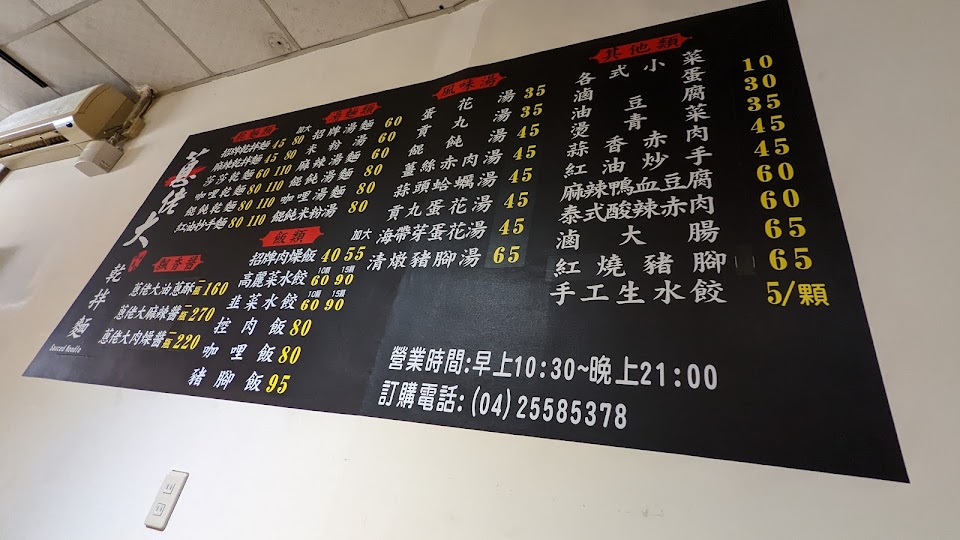 蔥佬大
乾拌麵
Sauced Noodle
乾麵類
加大
招牌乾拌麵 45 80
麻辣乾拌麵 45 80
莎莎乾麵 60 110
咖哩乾麵 80 110
餛飩乾麵 80 110
紅油抄手麵 80 110
湯麵類
招牌湯麵 60
米粉湯 60
麻辣湯麵 60
餛飩湯麵 80
咖哩湯麵 80
餛飩米粉湯 80
飯類
加大
招牌肉燥飯 40 55
10顆 15顆
高麗菜水餃 60 90
10顆 15顆
韭菜水餃 60 90
控肉飯 80
咖哩飯 80
豬腳飯 95
飄香醬
蔥佬大油蔥酥一瓶160
蔥佬大麻辣醬一瓶270
蔥佬大肉燥醬一瓶220
風味湯
蛋花湯 35
貢丸湯 35
餛飩湯 45
薑絲赤肉湯 45
蒜頭蛤蠣湯 45
貢丸蛋花湯 45
海帶芽蛋花湯 45
清燉豬腳湯 65
其他類
各式小菜 10
滷蛋 30
油豆腐 35
燙青菜 45
蒜香赤肉 45
紅油炒手 60
麻辣鴨血豆腐 60
泰式酸辣赤肉 65
滷大腸 65
紅燒豬腳 5/顆
手工生水餃
營業時間:早上10:30~晚上21:00
訂購電話:(04)25585378